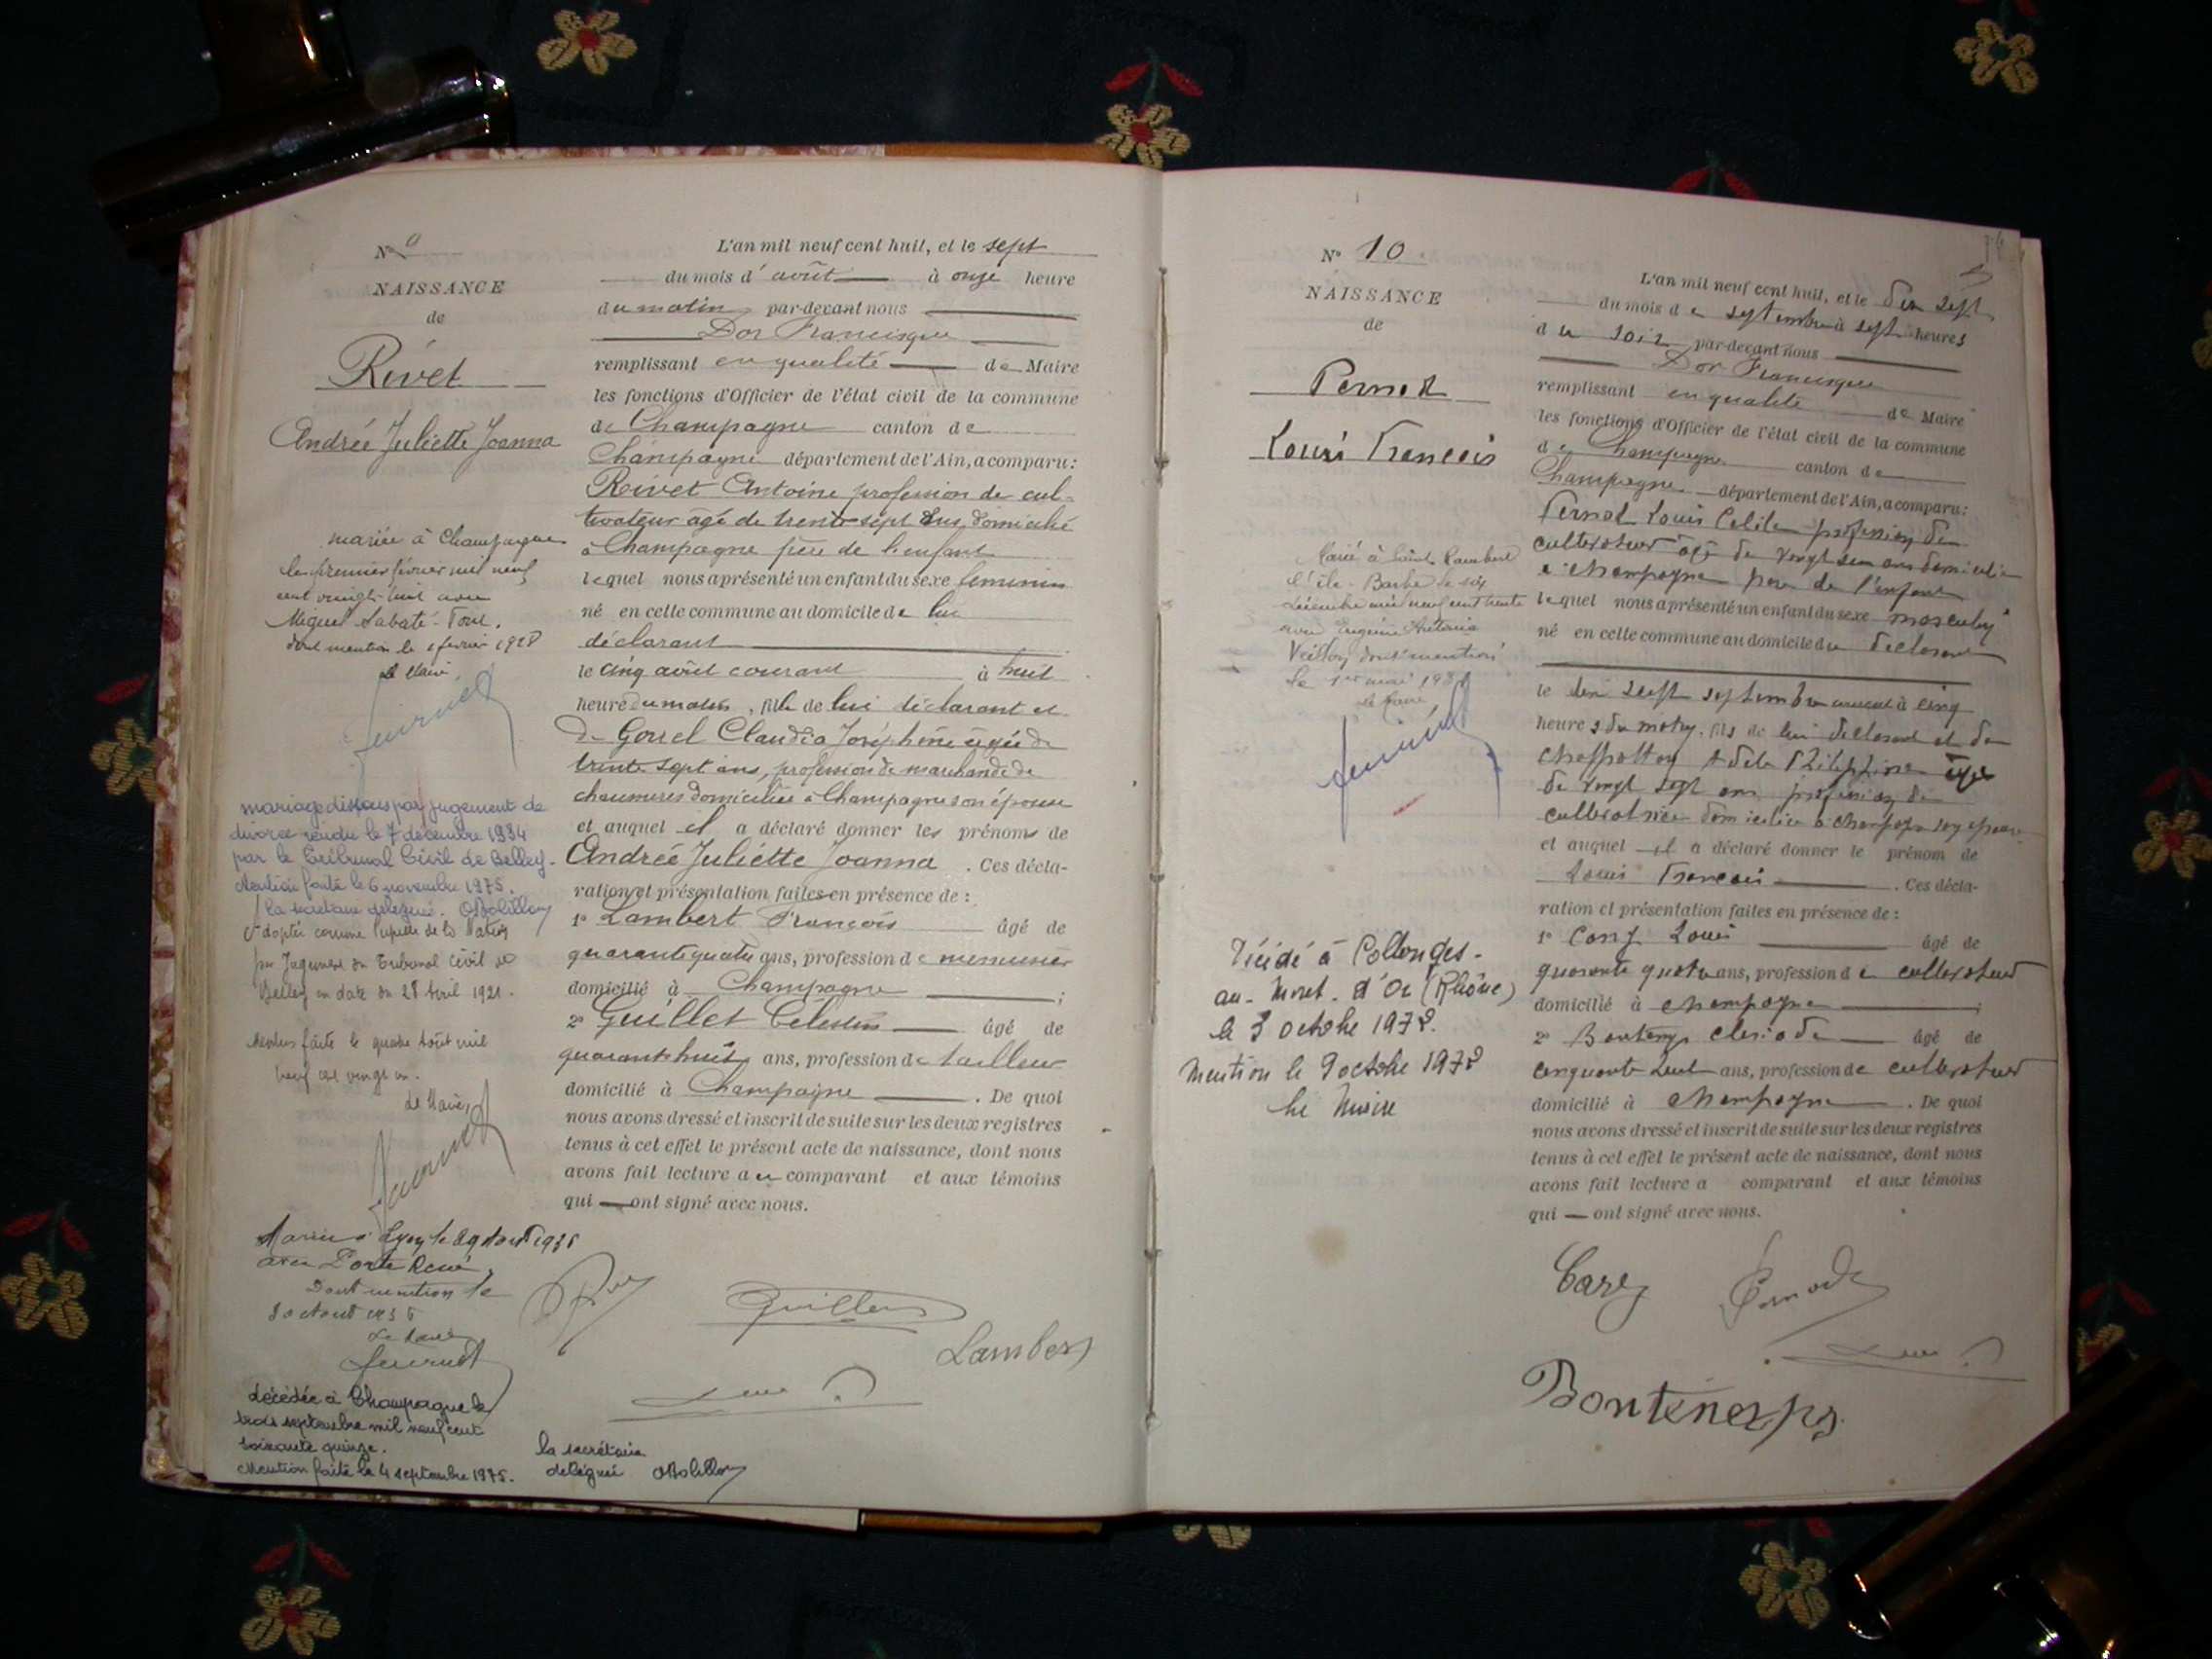 N° 9
NAISSANCE
de
Rivet
Andrée Juliette Joanna
mariée à Champagne
le premier février mil neuf
cent vingt huit avec
Miguel Sabaté-
dont mention le février 1928
le Maire
mariage dissous par jugement de
divorce rendu le 7 décembre 1934
par le Tribunal Civil de Belley.
Mention faite le 6 novembre 1975.
la secrétaire déléguée.
Adoptée comme Pupille de la Nation
par Jugement du Tribunal Civil de
Belley en date du 28 Avril 1921.
Mention faite le quatre août mil
neuf cent vingt un.
Le Maire
Mariée à Lyon le 29 Août
avec Porte René
Dont mention le
Le Maire
décédée à Champagne le
trois septembre mil neuf cent
soixante quinze.
Mention faite le 4 septembre 1975.
la secrétaire
déléguée
L'an mil neuf cent huit, et le sept
du mois d'août à onze heure
du matin par-devant nous
Dor Francisque
remplissant en qualité de Maire
les fonctions d'Officier de l'état civil de la commune
de Champagne canton de
Champagne département de l'Ain, a comparu:
Rivet Antoine profession de cul-
tivateur âgé de trente sept ans, domicilié
à Champagne père de l'enfant
lequel nous a présenté un enfant du sexe féminin
né en cette commune au domicile de lui
déclarant
le cinq août courant à huit
heure du matin, fille de lui déclarant et
de Claudia Joséphine âgée de
trente sept ans, profession de marchande de
chaussures domiciliée à Champagne son épouse
et auquel il a déclaré donner les prénoms de
Andrée Juliette Joanna. Ces décla-
ration et présentation faites en présence de:
1° Lambert François âgé de
quarante quatre ans, profession de menuisier
domicilié à Champagne;
2° Guillet Célestin âgé de
quarante huit ans, profession de tailleur
domicilié à Champagne. De quoi
nous avons dressé et inscrit de suite sur les deux registres
tenus à cet effet le présent acte de naissance, dont nous
avons fait lecture au comparant et aux témoins
qui — ont signé avec nous.
Guillet
Lambert
N° 10
NAISSANCE
de
Pernod
Louis François
Marié à Saint Rambert
l'île-Barbe le six
décembre mil neuf cent trente
avec Eugénie Antonia
dont mention
le 1er mai
le Maire
Décédé à Collonges-
au-Mont-d'Or (Rhône)
le 3 octobre 1978.
Mention le 9 octobre 1978
Le Maire
L'an mil neuf cent huit, et le dix sept
du mois de septembre à sept heures
du soir par-devant nous
Dor Francisque
remplissant en qualité de Maire
les fonctions d'Officier de l'état civil de la commune
de Champagne canton de
Champagne département de l'Ain, a comparu:
Pernod Louis profession de
cultivateur âgé de vingt ans domicilié
à champagne père de l'enfant
lequel nous a présenté un enfant du sexe masculin
né en cette commune au domicile du déclarant
le dix sept septembre courant à cinq
heures du matin, fils de lui déclarant et de
Philippine âgée
de vingt sept ans profession de
cultivatrice domiciliée à champagne son épouse
et auquel il a déclaré donner le prénom de
Louis François. Ces décla-
ration et présentation faites en présence de:
1° Louis âgé de
quarante quatre ans, profession de cultivateur
domicilié à champagne;
2° Bontemps âgé de
cinquante ans, profession de cultivateur
domicilié à champagne. De quoi
nous avons dressé et inscrit de suite sur les deux registres
tenus à cet effet le présent acte de naissance, dont nous
avons fait lecture a comparant et aux témoins
qui — ont signé avec nous.
Bontemps